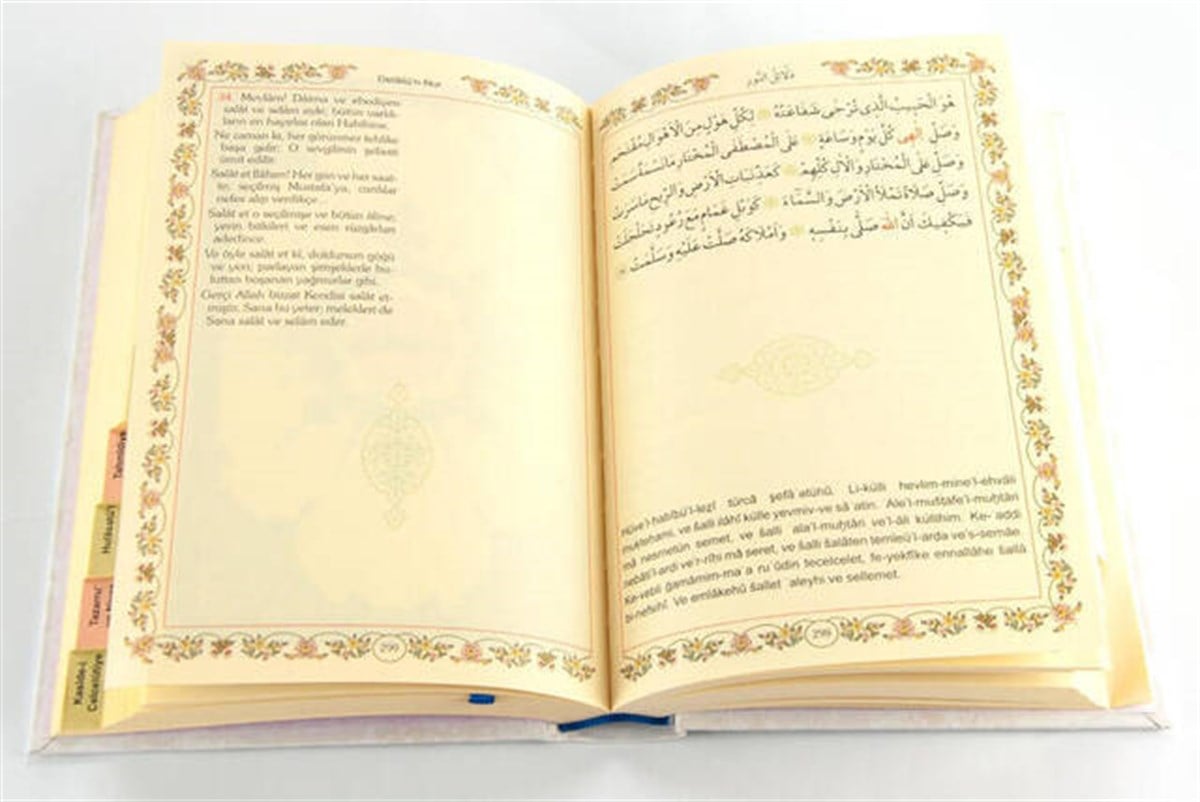 Delâilü'n-Nur
34. Mevlâm! Dâima ve ebediyen
salât ve selâm eyle; bütün varlık-
ların en hayırlısı olan Habibine.
Ne zaman ki, her görünmez tehlike
başa gelir; O sevgilinin şefaati
ümit edilir.
Salât et İlâhım! Her gün ve her saat-
te, seçilmiş Mustafa'ya, canlılar
nefes alıp verdikçe...
Salât et o seçilmişe ve bütün âline;
yerin bitkileri ve esen rüzgârları
adedince.
Ve öyle salât et ki, doldursun göğü
ve yeri; parlayan şimşeklerle bu-
luttan boşanan yağmurlar gibi.
Gerçi Allah bizzat Kendisi salât et-
miştir, Sana bu yeter; melekleri de
Sana salât ve selâm eder.
299
Tahmidiye
Hulâsatü'l
Tazarru'
Kaside-i
Celcelûtiye
دَلَائِلُ النُّورِ
هُوَ الْحَبِيبُ الَّذِى تُرْجٰى شَفَاعَتُهُ لِكُلِّ هَوْلٍ مِنَ الْاَهْوَالِ مُقْتَحَمِ
وَصَلِّ اِلٰهِى كُلَّ يَوْمٍ وَسَاعَةٍ عَلَى الْمُصْطَفَى الْمُخْتَارِ مَا نَسْمَةٌ سَمَتْ
وَصَلِّ عَلَى الْمُخْتَارِ وَالْاٰلِ كُلِّهِمْ كَعَدِّ نَبَاتِ الْاَرْضِ وَالرِّيحِ مَا سَرَتْ
وَصَلِّ صَلَاةً تَمْلَأُ الْاَرْضَ وَالسَّمَاءَ كَوَبْلِ غَمَامٍ مَعَ رُعُودٍ تَجَلْجَلَتْ
فَيَكْفِيكَ اَنَّ اللّٰهَ صَلَّى بِنَفْسِهِ وَاَمْلَاكَهُ صَلَّتْ عَلَيْهِ وَسَلَّمَتْ
Hüve'l-habîbü'l-lezî türcâ şefâ'atühû. Li-külli hevlim-mine'l-ehvâli
muktehami, ve šalli ilâhî külle yevmiv-ve sâ'atin. Ale'l-muštafe'l-muḫtâri
mâ nesmetün semet, ve šalli 'ala'l-muḫtâri ve'l-âli küllihim. Ke-'addi
nebâti'l-arḍi ve'r-rîḥi mâ seret, ve šalli šalâten temleü'l-arda ve's-semâe
Ke-vebli ğamâmim-ma'a ru'ûdin tecelcelet, fe-yekfîke ennallâhe šallâ
bi-nefsihî. Ve emlâkehû šallet 'aleyhi ve sellemet.
299